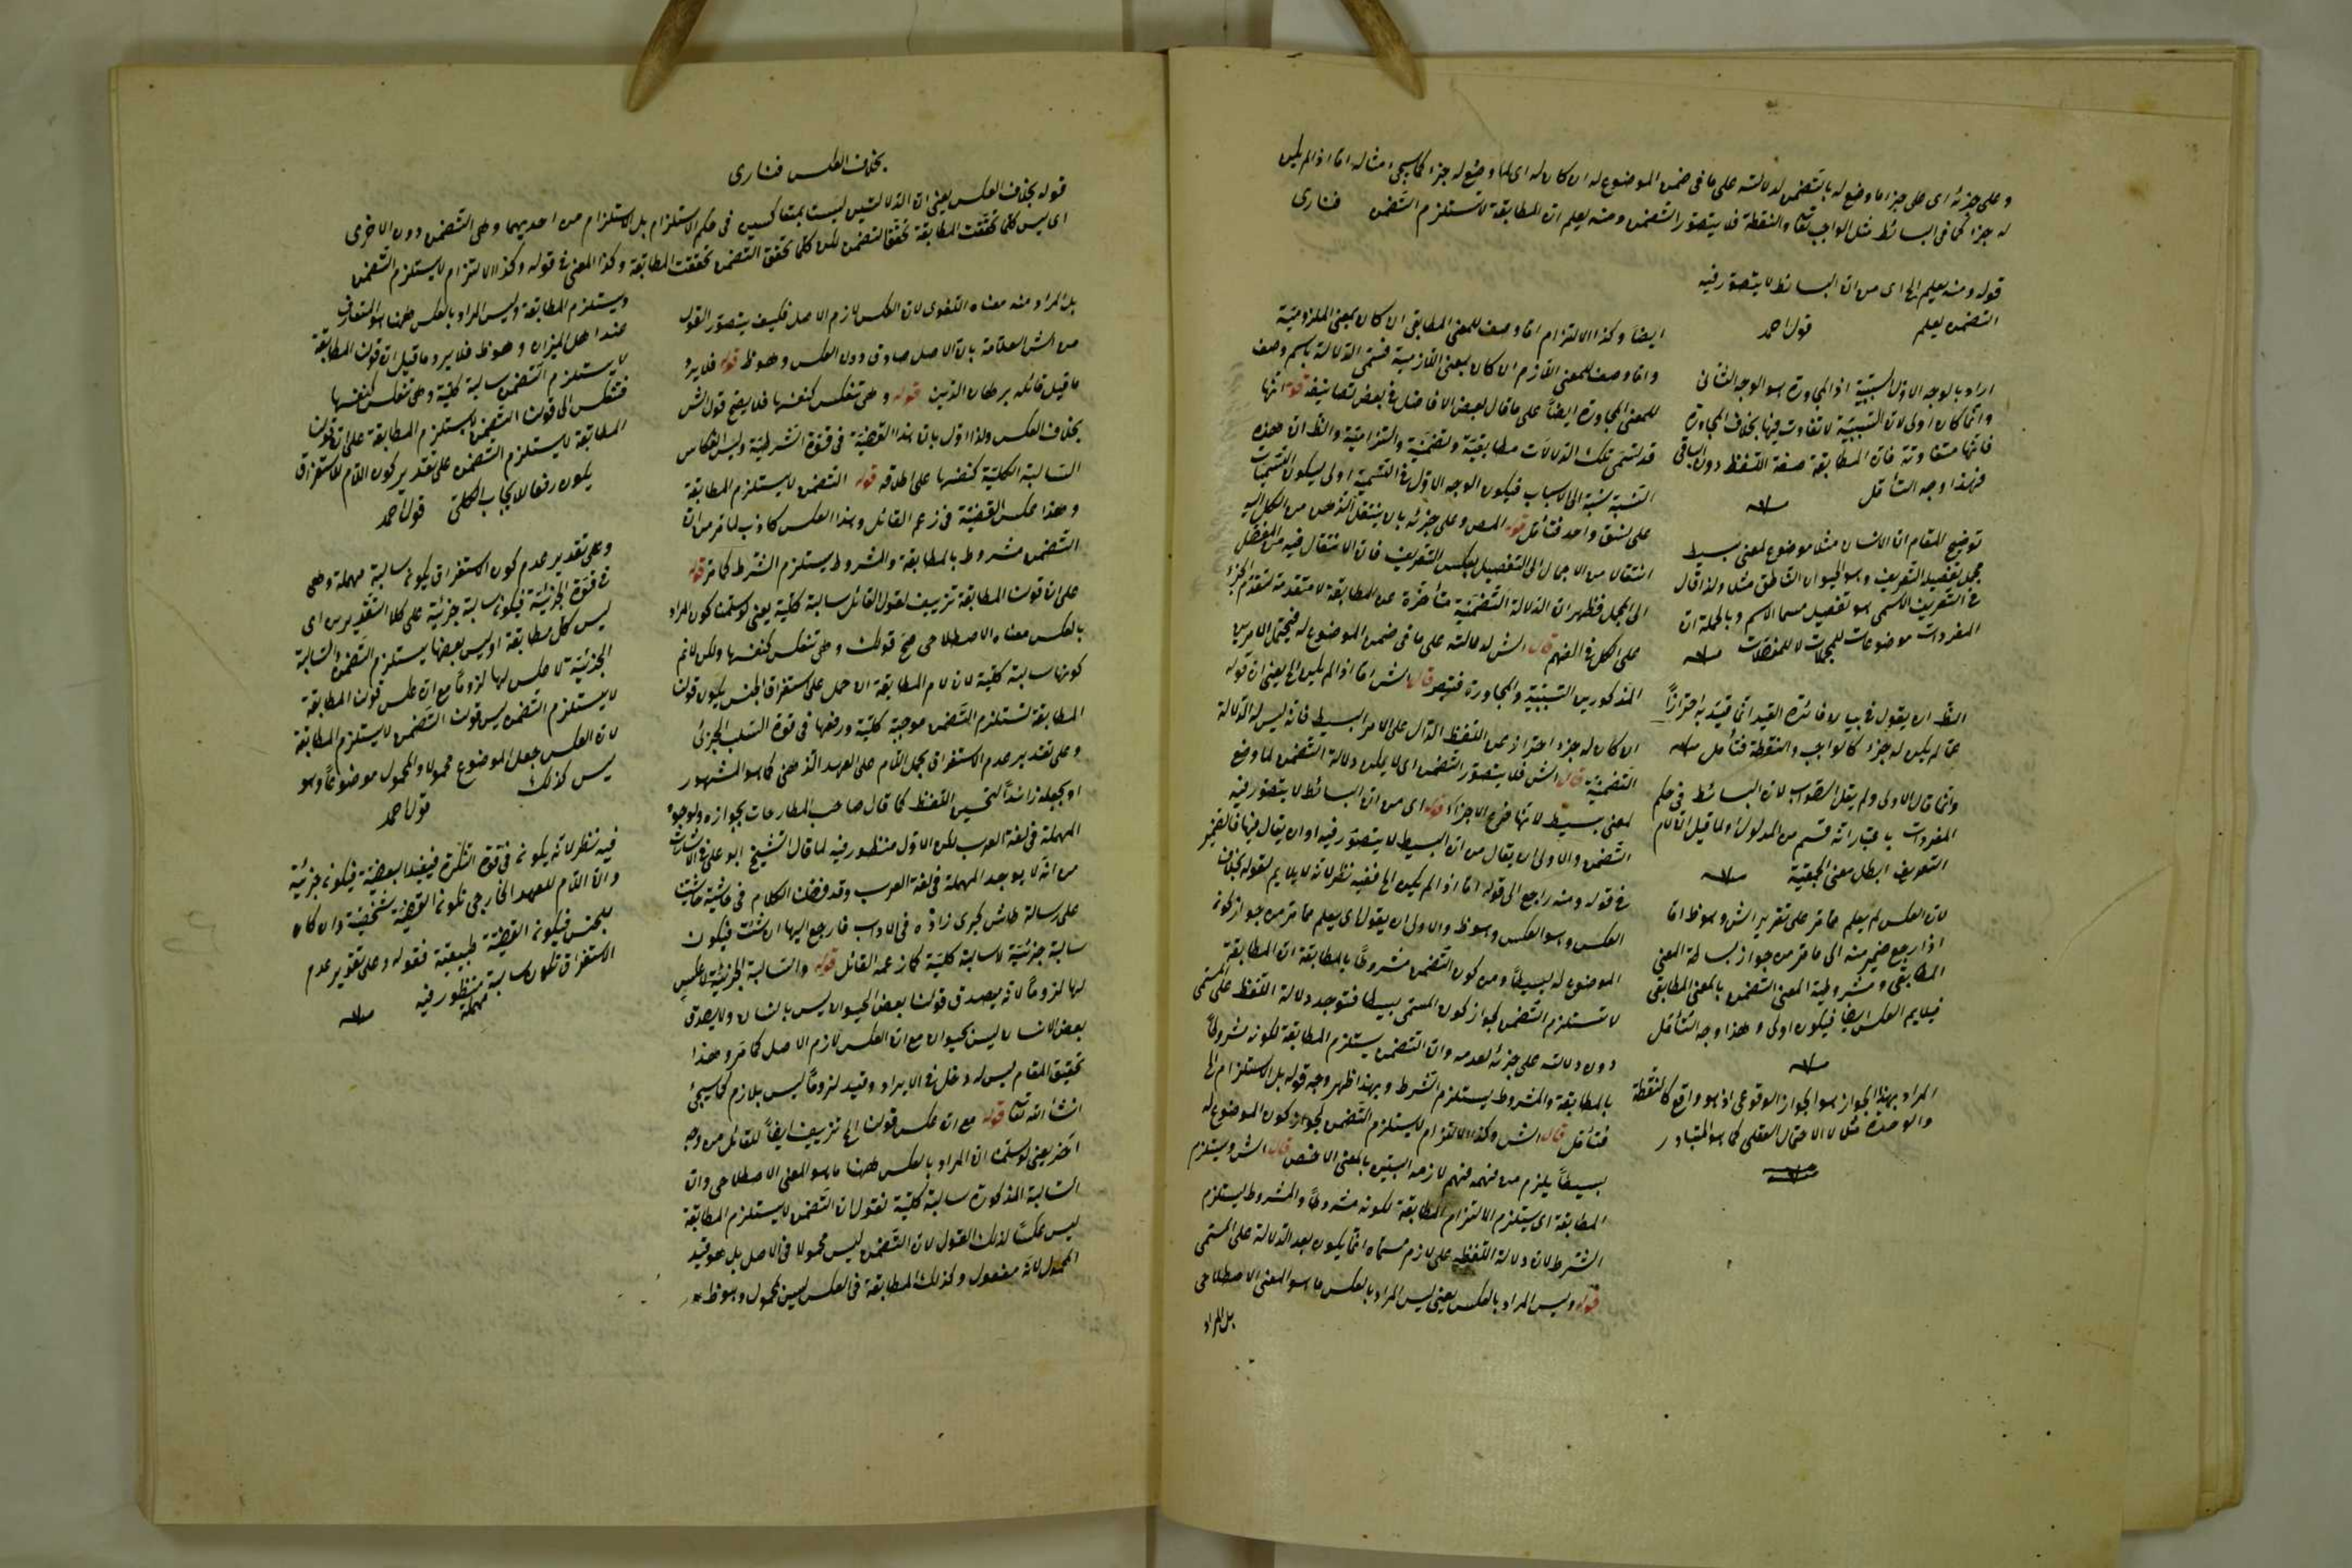 وعلى جزئه اى على جزء ما وضع له بالتضمن لدلالته على ما فى ضمن الموضوع له ان كان له اى لما وضع له جزء كما سيجئ مثاله اما اذا لم يكن
له جزء كما فى البسائط مثل الواجب تعا والنقطة فلا يتصور التضمن ومنه يعلم ان المطابقة لا تستلزم التضمن فنارى
قوله ومنه يعلم الخ اى من ان البسائط لا يتصور فيه
التضمن يعلم قول احمد
اراد بالوجه الاول السببية اذ المجاورة هو الوجه الثانى
وانما كان اولى لان السببية لا تفاوت فيها بخلاف المجاورة
فانها متفاوتة فان المطابقة صفة اللفظ دون الباقى
فهذا وجه التأمل
توضيح المقام ان الانسان مثلا موضوع لمعنى بسيط
مجمل تفصيله التعريف وهو الحيوان الناطق مثلا ولذا قال
فى التعريف الاسمى هو تفصيل مسما الاسم وبالجملة ان
المفردات موضوعات للمجملات لا للمفصلات
الظ ان يقول فى بيان فائدة القيد انما قيد به احترازاً
عما لم يكن له جزء كالواجب والنقطة فتأمل
وانما قال الاولى ولم يقل الصواب لان البسائط فى حكم
المفردات باعتبار انه قسم من المدلول ولما قيل ان لام
التعريف ابطل معنى الجمعية
لان العكس لم يعلم مما مر على تقرير الش وهو ظ اما
اذا رجع ضمير منه الى ما مر من جواز بساطة المعنى
المطابقى ومشروطية المعنى التضمن بالمعنى المطابقى
فيلايم العكس ايضاً فيكون اولى وهذا وجه التأمل
المراد بهذا الجواز هو الجواز الوقوعى اذ هو واقع كالنقطة
والوحدة مثلا لا الاحتمال العقلى كما هو المتبادر
ايضاً وكذا الالتزام اما وصف للمعنى المطابقى ان كان بمعنى الملزومية
واما وصف للمعنى اللازم ان كان بمعنى اللازمية فتسمى الدلالة باسم وصف
للمعنى المجاورة ايضاً على ما قال بعض الافاضل فى بعض تصانيفه قوله انها
قد تسمى تلك الدلالات مطابقية وتضمنية والتزامية والظ ان هذه
النسبة نسبة الى الاسباب فيكون الوجه الاول فى التسمية اولى ليكون التسميات
على نسق واحد فتأمل قوله المص وعلى جزئه بان ينتقل الذهن من الكل اليه
انتقالا من الاجمال الى التفصيل بعكس التعريف فان الانتقال فيه من المفصل
الى المجمل فظهر ان الدلالة التضمنية متأخرة عن المطابقة لا متقدمة لتقدم الجزء
على الكل فى الفهم قال الش لدلالته على ما فى ضمن الموضوع له فيحتمل الامرين
المذكورين السببية والمجاورة فتبصر قال الش اما اذا لم يكن الخ يعنى ان قوله
ان كان له جزء احتراز عن اللفظ الدال على الامر البسيط فانه ليس له الدلالة
التضمنية قال الش فلا يتصور التضمن اى لا يمكن دلالة التضمن لما وضع
لمعنى بسيط لانها فرع الاجزاء قوله اى من ان البسائط لا يتصور فيه
التضمن والاولى ان يقال من ان البسيط لا يتصور فيه او ان يقال فيها فالضمير
فى قوله ومنه راجع الى قوله اما اذا لم يكن الخ ففيه نظر لانه لا يلايم لقوله بخلاف
العكس وهو العكس وهو ظ والاولى ان يقول اى يعلم مما مر من جواز كونه
الموضوع له بسيطاً ومن كون التضمن مشروطاً بالمطابقة ان المطابقة
لا تستلزم التضمن لجواز كون المسمى بسيطا فتوجد دلالة اللفظ على المسمى
دون دلالته على جزئه لعدمه وان التضمن يستلزم المطابقة لكونه مشروطاً
بالمطابقة والمشروط يستلزم الشرط وبهذا ظهر وجه قوله بل الاستلزام الخ
فتأمل قال الش وكذا الالتزام لا يستلزم التضمن لجواز كون الموضوع له
بسيطاً يلزم من فهمه فهم لازمه البين بالمعنى الاخص قال الش ويستلزم
المطابقة اى يستلزم الالتزام المطابقة لكونه مشروطاً والمشروط يستلزم
الشرط لان دلالة اللفظ على لازم مسماه انما يكون بعد الدلالة على المسمى
قوله وليس المراد بالعكس يعنى ليس المراد بالعكس ما هو المعنى الاصطلاحى
بل المراد
بخلاف العكس فنارى
قوله بخلاف العكس يعنى ان الدلالتين ليست بمتعاكسين فى حكم الاستلزام بل الاستلزام من احديهما وهى التضمن دون الاخرى
اى ليس كلما تحققت المطابقة تحقق التضمن لكن كلما تحقق التضمن تحققت المطابقة وكذا المعنى فى قوله وكذا الالتزام لا يستلزم التضمن
ويستلزم المطابقة وليس المراد بالعكس ههنا هو المتعارف
عند اهل الميزان وهو ظ فلا يرد ما قيل ان قولنا المطابقة
لا يستلزم التضمن سالبة كلية وهى تنعكس كنفسها
فتنعكس الى قولنا التضمن لا يستلزم المطابقة على ان قولنا
المطابقة لا يستلزم التضمن على تقدير كون اللام للاستغراق
يكون رفعا للايجاب الكلى قول احمد
وعلى تقدير عدم كون الاستغراق يكون سالبة مهملة وهى
فى قوة الجزئية فيكون سالبة جزئية على كلا التقديرين اى
ليس كل مطابقة او ليس بعضها يستلزم التضمن والسالبة
الجزئية لا عكس لها لزوماً مع ان عكس قولنا المطابقة
لا يستلزم التضمن ليس قولنا التضمن لا يستلزم المطابقة
لان العكس جعل الموضوع محمولا والمحمول موضوعاً وهو
ليس كذلك قول احمد
فيه نظر لانه يكون فى قوة النكرة فيفيد البعضية فيكون جزئية
والا اللام للعهد الخارجى تكون القضية شخصية وان كان
للجنس فيكون القضية طبيعية فقوله وعلى تقدير عدم
الاستغراق تكون سالبة مهملة منظور فيه
بل المراد منه معناه اللغوى لان العكس لازم الاصل فكيف يتصور القول
من الش العلامة بان الاصل صادق دون العكس وهو ظ قوله فلا يرد
ما قيل قائله برهان الدين قوله وهى تنعكس كنفسها فلا يصح قول الش
بخلاف العكس ولذا اول بان هذا القضية فى قوة الشرطية وليس انعكاس
السالبة الكلية كنفسها على اطلاقه قوله التضمن لا يستلزم المطابقة
وهذا عكس القضية فى زعم القائل وهذا العكس كاذب لما مر من ان
التضمن مشروط بالمطابقة والمشروط يستلزم الشرط كما مر قوله
على ان قولنا المطابقة تزييف لقول القائل سالبة كلية يعنى لو سلمنا كون المراد
بالعكس معناه الاصطلاحى صح قولك وهى تنعكس كنفسها ولكن لا نم
كونها سالبة كلية لان لام المطابقة ان حمل على استغراق الجنس يكون قولنا
المطابقة تستلزم التضمن موجبة كلية ورفعها فى قوة السلب الجزئى
وعلى تقدير عدم الاستغراق بجمل اللام على العهد الذهنى كما هو المشهور
او بجعله زائداً لتحسين اللفظ كما قال صاحب المطارحات بجوازه ولوجود
المهملة فى لغة العرب لكن الاول منظور فيه لما قال الشيخ ابو على فى الاشارات
من انه لا يوجد المهملة فى لغة العرب وقد فصلنا الكلام فى حاشية حاشيت
على رسالة طاش كبرى زاده فى الاداب فارجع اليها ان شئت فيكون
سالبة جزئية لا سالبة كلية كما زعمه القائل قوله والسالبة الجزئية لا عكس
لها لزوماً لانه يصدق قولنا بعض الحيوان ليس بانسان ولا يصدق
بعض الانسان ليس بحيوان مع ان العكس لازم الاصل كما مر وهذا
تحقيق المقام ليس له دخل فى الايراد وقيد لزوماً ليس بلازم كما سيجئ
ان شاء الله تعا قوله مع ان عكس قولنا الخ تزييف ايضاً للقائل من وجه
اخر يعنى لو سلمنا ان المراد بالعكس ههنا ما هو المعنى الاصطلاحى وان
السالبة المذكورة سالبة كلية نقول ان التضمن لا يستلزم المطابقة
ليس عكساً لذلك القول لان التضمن ليس محمولا فى الاصل بل هو قيد
المحمول لانه مفعول وكذلك المطابقة فى العكس ليس بمحمول وهو ظ